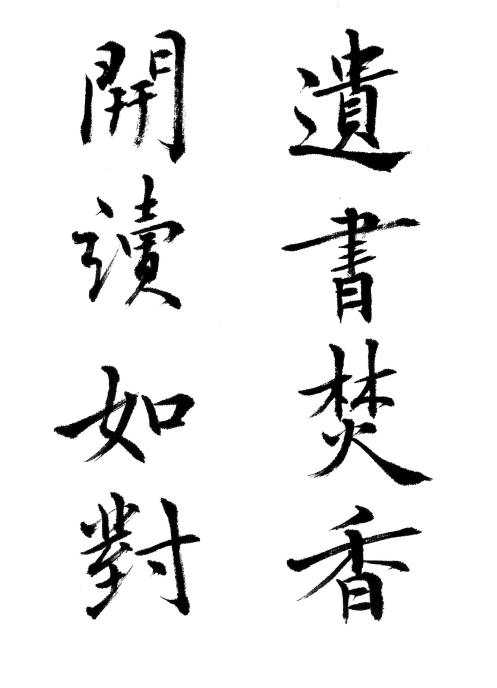 遺書焚香
開讀如對